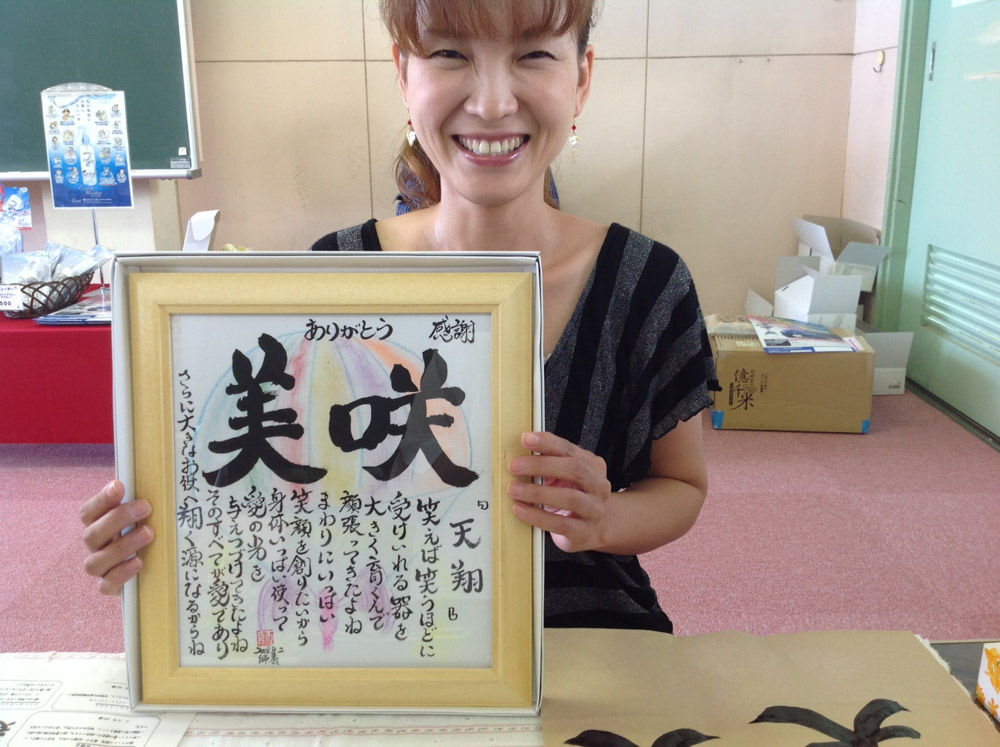 ありがとう 感謝
美咲
天翔
笑えば笑うほどに
受けいれる器を
大きく育くんで
頑張ってきたよね
まわりにいっぱい
笑顔を創りたいから
身体いっぱい使って
愛の光を
与えつづけてきたよね
そのすべてが愛であり
さらに大きなお世へ翔く源になるからね
億千米
500